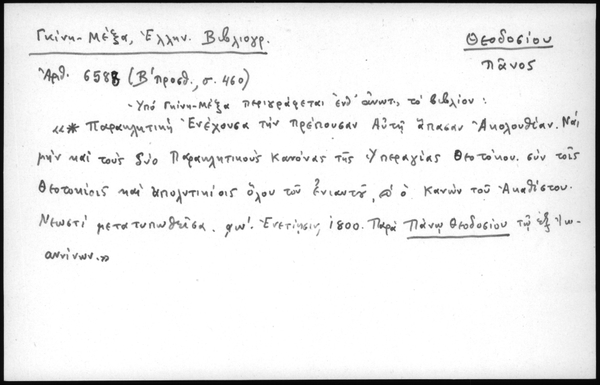 Γκίνη-Μέξα, Ἑλλην. Βιβλιογρ.
Θεοδοσίου
Πᾶνος
Ἀρθ. 6588 (Β' προσθ., σ. 460)
- Ὑπό Γκίνη-Μέξα περιγράφεται ἐνθ' ἀνωτ., τό βιβλίον:
«* Παρακλητική Ἐνέχουσα τήν πρέπουσαν Αὐτῇ ἅπασαν Ἀκολουθίαν. Ναί
μήν καί τούς δύο Παρακλητικούς Κανόνας τῆς Ὑπεραγίας Θεοτόκου. σύν τοῖς
Θεοτοκίοις καί ἀπολυτικίοις ὅλου τοῦ ἐνιαυτοῦ, ὁ Κανών τοῦ Ἀκαθίστου.
Νεωστί μετατυπωθεῖσα. ͵αω'. Ἐνετίῃσιν, 1800. Παρά Πάνῳ Θεοδοσίου τῷ ἐξ Ἰω-
αννίνων.»